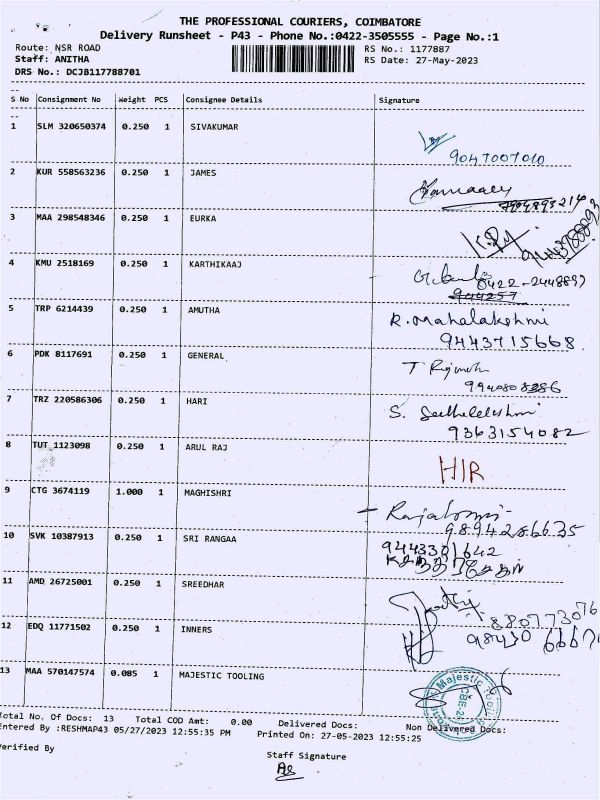 THE PROFESSIONAL COURIERS, COIMBATORE
Delivery Runsheet - P43 - Phone No.:0422-3505555 - Page No.:1
Route: NSR ROAD RS No.: 1177887
Staff: ANITHA RS Date: 27-May-2023
DRS No.: DCJB117788701
S No Consignment No Weight PCS Consignee Details Signature
1 SLM 320650374 0.250 1 SIVAKUMAR
9047007010
2 KUR 558563236 0.250 1 JAMES
7904893214
3 MAA 298548346 0.250 1 EURKA
9443788893
4 KMU 2518169 0.250 1 KARTHIKAAJ
0422-2448897
944257
5 TRP 6214439 0.250 1 AMUTHA R. Mahalakshmi
9443715668
6 PDK 8117691 0.250 1 GENERAL
7 TRZ 220586306 0.250 1 HARI
9363154082
8 TUT 1123098 0.250 1 ARUL RAJ HIR
9 CTG 3674119 1.000 1 MAGHISHRI
9894286635
10 SVK 10387913 0.250 1 SRI RANGAA 9443301642
11 AMD 26725001 0.250 1 SREEDHAR
12 EDQ 11771502 0.250 1 INNERS
13 MAA 570147574 0.085 1 MAJESTIC TOOLING
Majestic
CBE
Total No. Of Docs: 13 Total COD Amt: 0.00 Delivered Docs: Non Delivered Docs:
Entered By :RESHMAP43 05/27/2023 12:55:35 PM Printed On: 27-05-2023 12:55:25
Verified By
Staff Signature